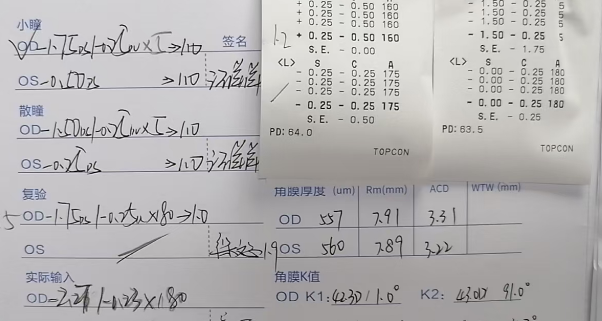 小瞳
OD-1.75DS/-0.25DC×5→1.0 签名
OS-0.50DS →1.0
散瞳
OD-1.50DS/-0.25DC×5→1.0
OS-0.25DS →1.0
复验
5 OD-1.75DS/-0.25DC×180→1.0
OS 1.9
实际输入
OD-2.25/-0.23×180
1.2
+ 0.25 - 0.50 160
+ 0.25 - 0.50 160
+ 0.25 - 0.50 160
+ 0.25 - 0.50 160
S.E. - 0.00
<L> S C A
- 0.25 - 0.25 175
- 0.25 - 0.25 175
- 0.25 - 0.25 175
- 0.25 - 0.25 175
S.E. - 0.50
PD: 64.0
TOPCON
- 1.50 - 0.25 5
- 1.50 - 0.25 5
- 1.50 - 0.25 5
S.E. - 1.75
<L> S C A
- 0.00 - 0.25 180
- 0.00 - 0.25 180
- 0.00 - 0.25 180
- 0.00 - 0.25 180
S.E. - 0.25
PD: 63.5
TOPCON
角膜厚度 (um) Rm(mm) ACD WTW (mm)
OD 557 7.91 3.31
OS 560 7.89 3.22
角膜K值
OD K1: 42.30/1.0° K2: 43.00 91.0°